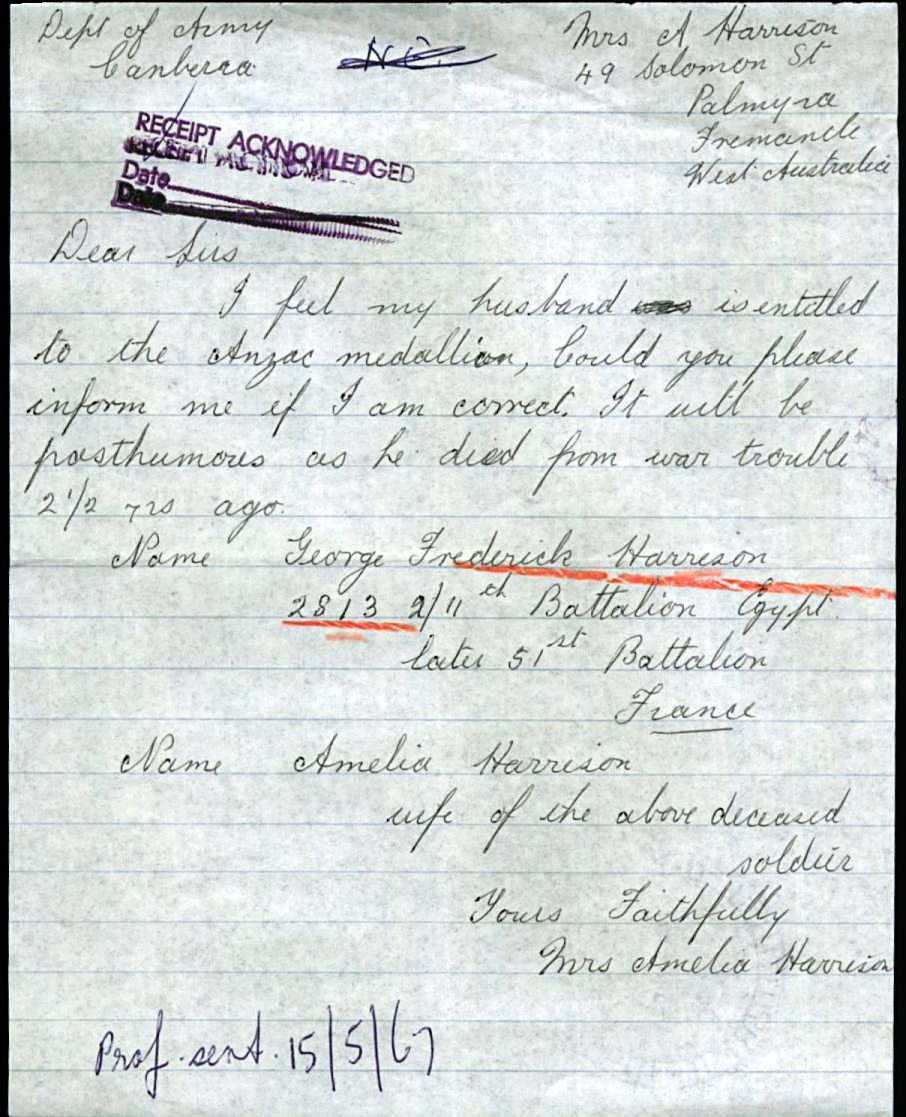 Dept of Army
Canberra
Mrs A Harrison
49 Solomon St
Palmyra
Fremancle
West Australia
RECEIPT ACKNOWLEDGED
Date
Date
Dear Sirs
I feel my husband is entitled
to the Anzac medallion, Could you please
inform me if I am correct. It will be
posthumous as he died from war trouble
2 1/2 yrs ago.
Name George Frederick Harrison
2813 2/11th Battalion Egypt.
later 51st Battalion
France
Name Amelia Harrison
wife of the above deceased
soldier
Yours Faithfully
Mrs Amelia Harrison
Prof. sent. 15/5/67